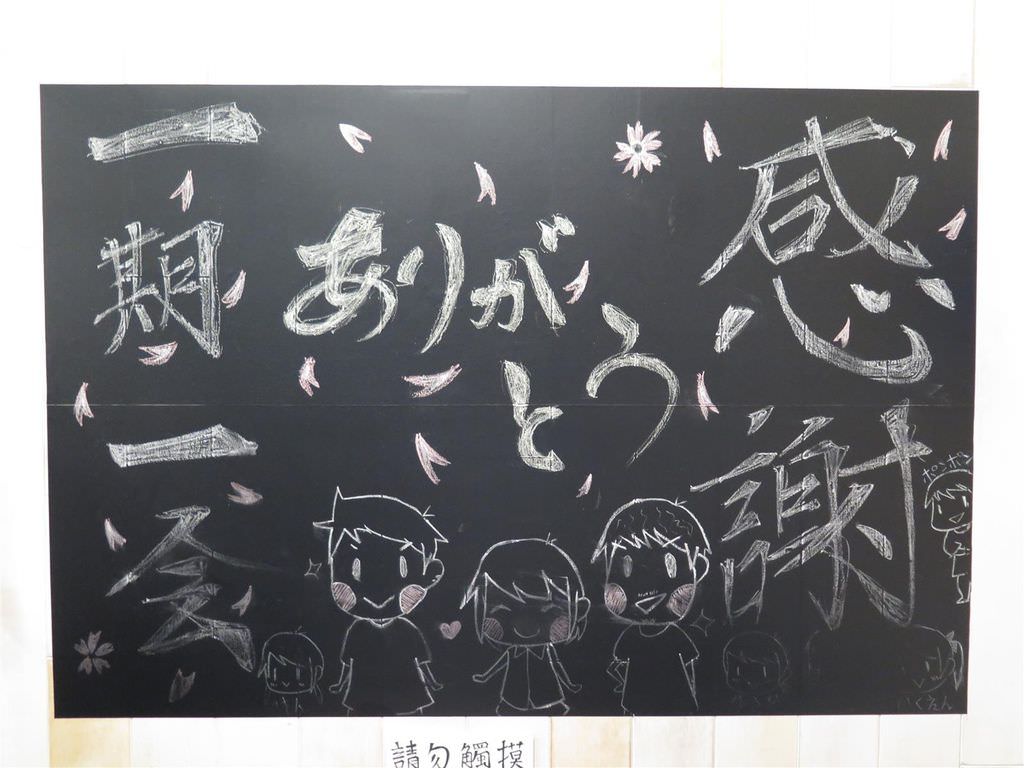 感謝
ありがとう
一期一会
ポンポン
いくえん
請勿觸摸